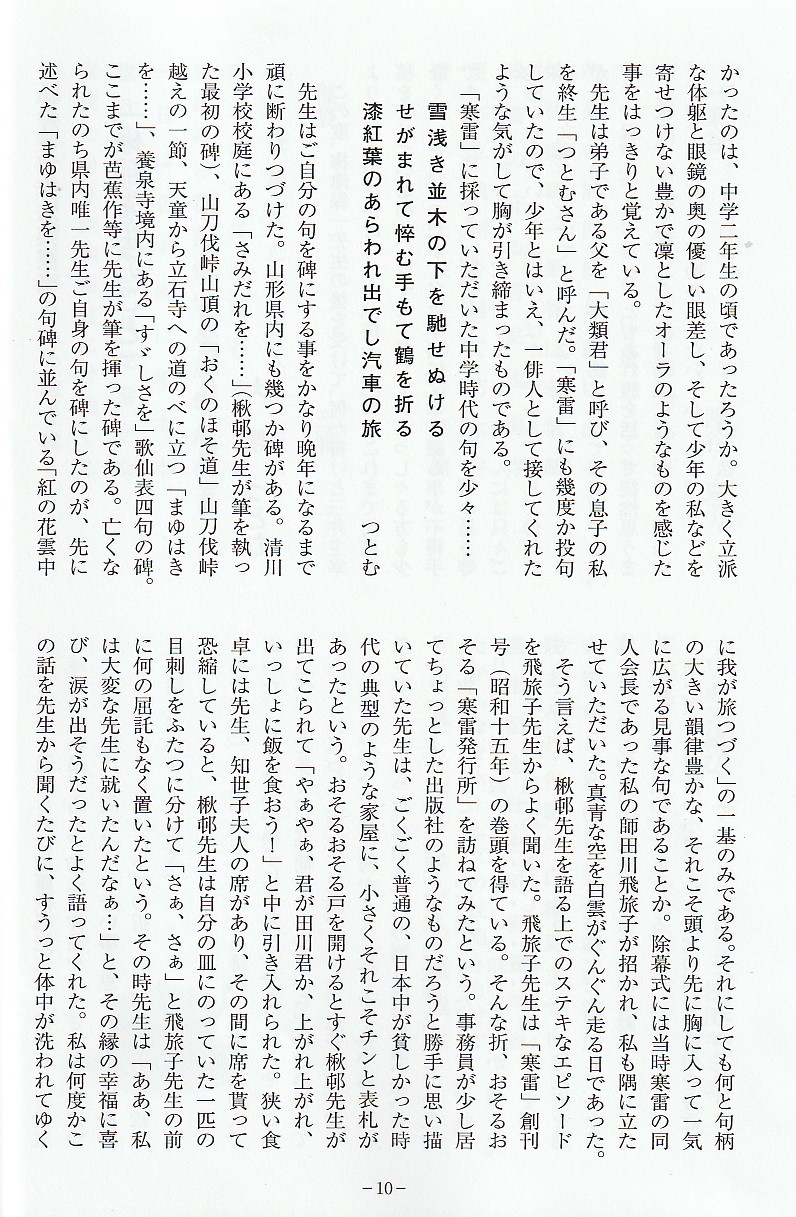 かったのは、中学二年生の頃であったろうか。大きく立派
な体躯と眼鏡の奥の優しい眼差し、そして少年の私などを
寄せつけない豊かで凜としたオーラのようなものを感じた
事をはっきりと覚えている。
先生は弟子である父を「大類君」と呼び、その息子の私
を終生「つとむさん」と呼んだ。「寒雷」にも幾度か投句
していたので、少年とはいえ、一俳人として接してくれた
ような気がして胸が引き締まったものである。
「寒雷」に採っていただいた中学時代の句を少々……
雪浅き並木の下を馳せぬける
せがまれて悴む手もて鶴を折る
漆紅葉のあらわれ出でし汽車の旅　つとむ
先生はご自分の句を碑にする事をかなり晩年になるまで
頑に断わりつづけた。山形県内にも幾つか碑がある。清川
小学校校庭にある「さみだれを……」（楸邨先生が筆を執っ
た最初の碑）、山刀伐峠山頂の「おくのほそ道」山刀伐峠
越えの一節、天童から立石寺への道のべに立つ「まゆはき
を……」、養泉寺境内にある「すゞしさを」歌仙表四句の碑。
ここまでが芭蕉作等に先生が筆を揮った碑である。亡くな
られたのち県内唯一先生ご自身の句を碑にしたのが、先に
述べた「まゆはきを……」の句碑に並んでいる「紅の花雲中
に我が旅つづく」の一基のみである。それにしても何と句柄
の大きい韻律豊かな、それこそ頭より先に胸に入って一気
に広がる見事な句であることか。除幕式には当時寒雷の同
人会長であった私の師田川飛旅子が招かれ、私も隅に立た
せていただいた。真青な空を白雲がぐんぐん走る日であった。
そう言えば、楸邨先生を語る上でのステキなエピソード
を飛旅子先生からよく聞いた。飛旅子先生は「寒雷」創刊
号（昭和十五年）の巻頭を得ている。そんな折、おそるお
そる「寒雷発行所」を訪ねてみたという。事務員が少し居
てちょっとした出版社のようなものだろうと勝手に思い描
いていた先生は、ごくごく普通の、日本中が貧しかった時
代の典型のような家屋に、小さくそれこそチンと表札が
あったという。おそるおそる戸を開けるとすぐ楸邨先生が
出てこられて「やぁやぁ、君が田川君か、上がれ上がれ、
いっしょに飯を食おう！」と中に引き入れられた。狭い食
卓には先生、知世子夫人の席があり、その間に席を貰って
恐縮していると、楸邨先生は自分の皿にのっていた一匹の
目刺しをふたつに分けて「さぁ、さぁ」と飛旅子先生の前
に何の屈託もなく置いたという。その時先生は「ああ、私
は大変な先生に就いたんだなぁ…」と、その縁の幸福に喜
び、涙が出そうだったとよく語ってくれた。私は何度かこ
の話を先生から聞くたびに、すうっと体中が洗われてゆく
－10－